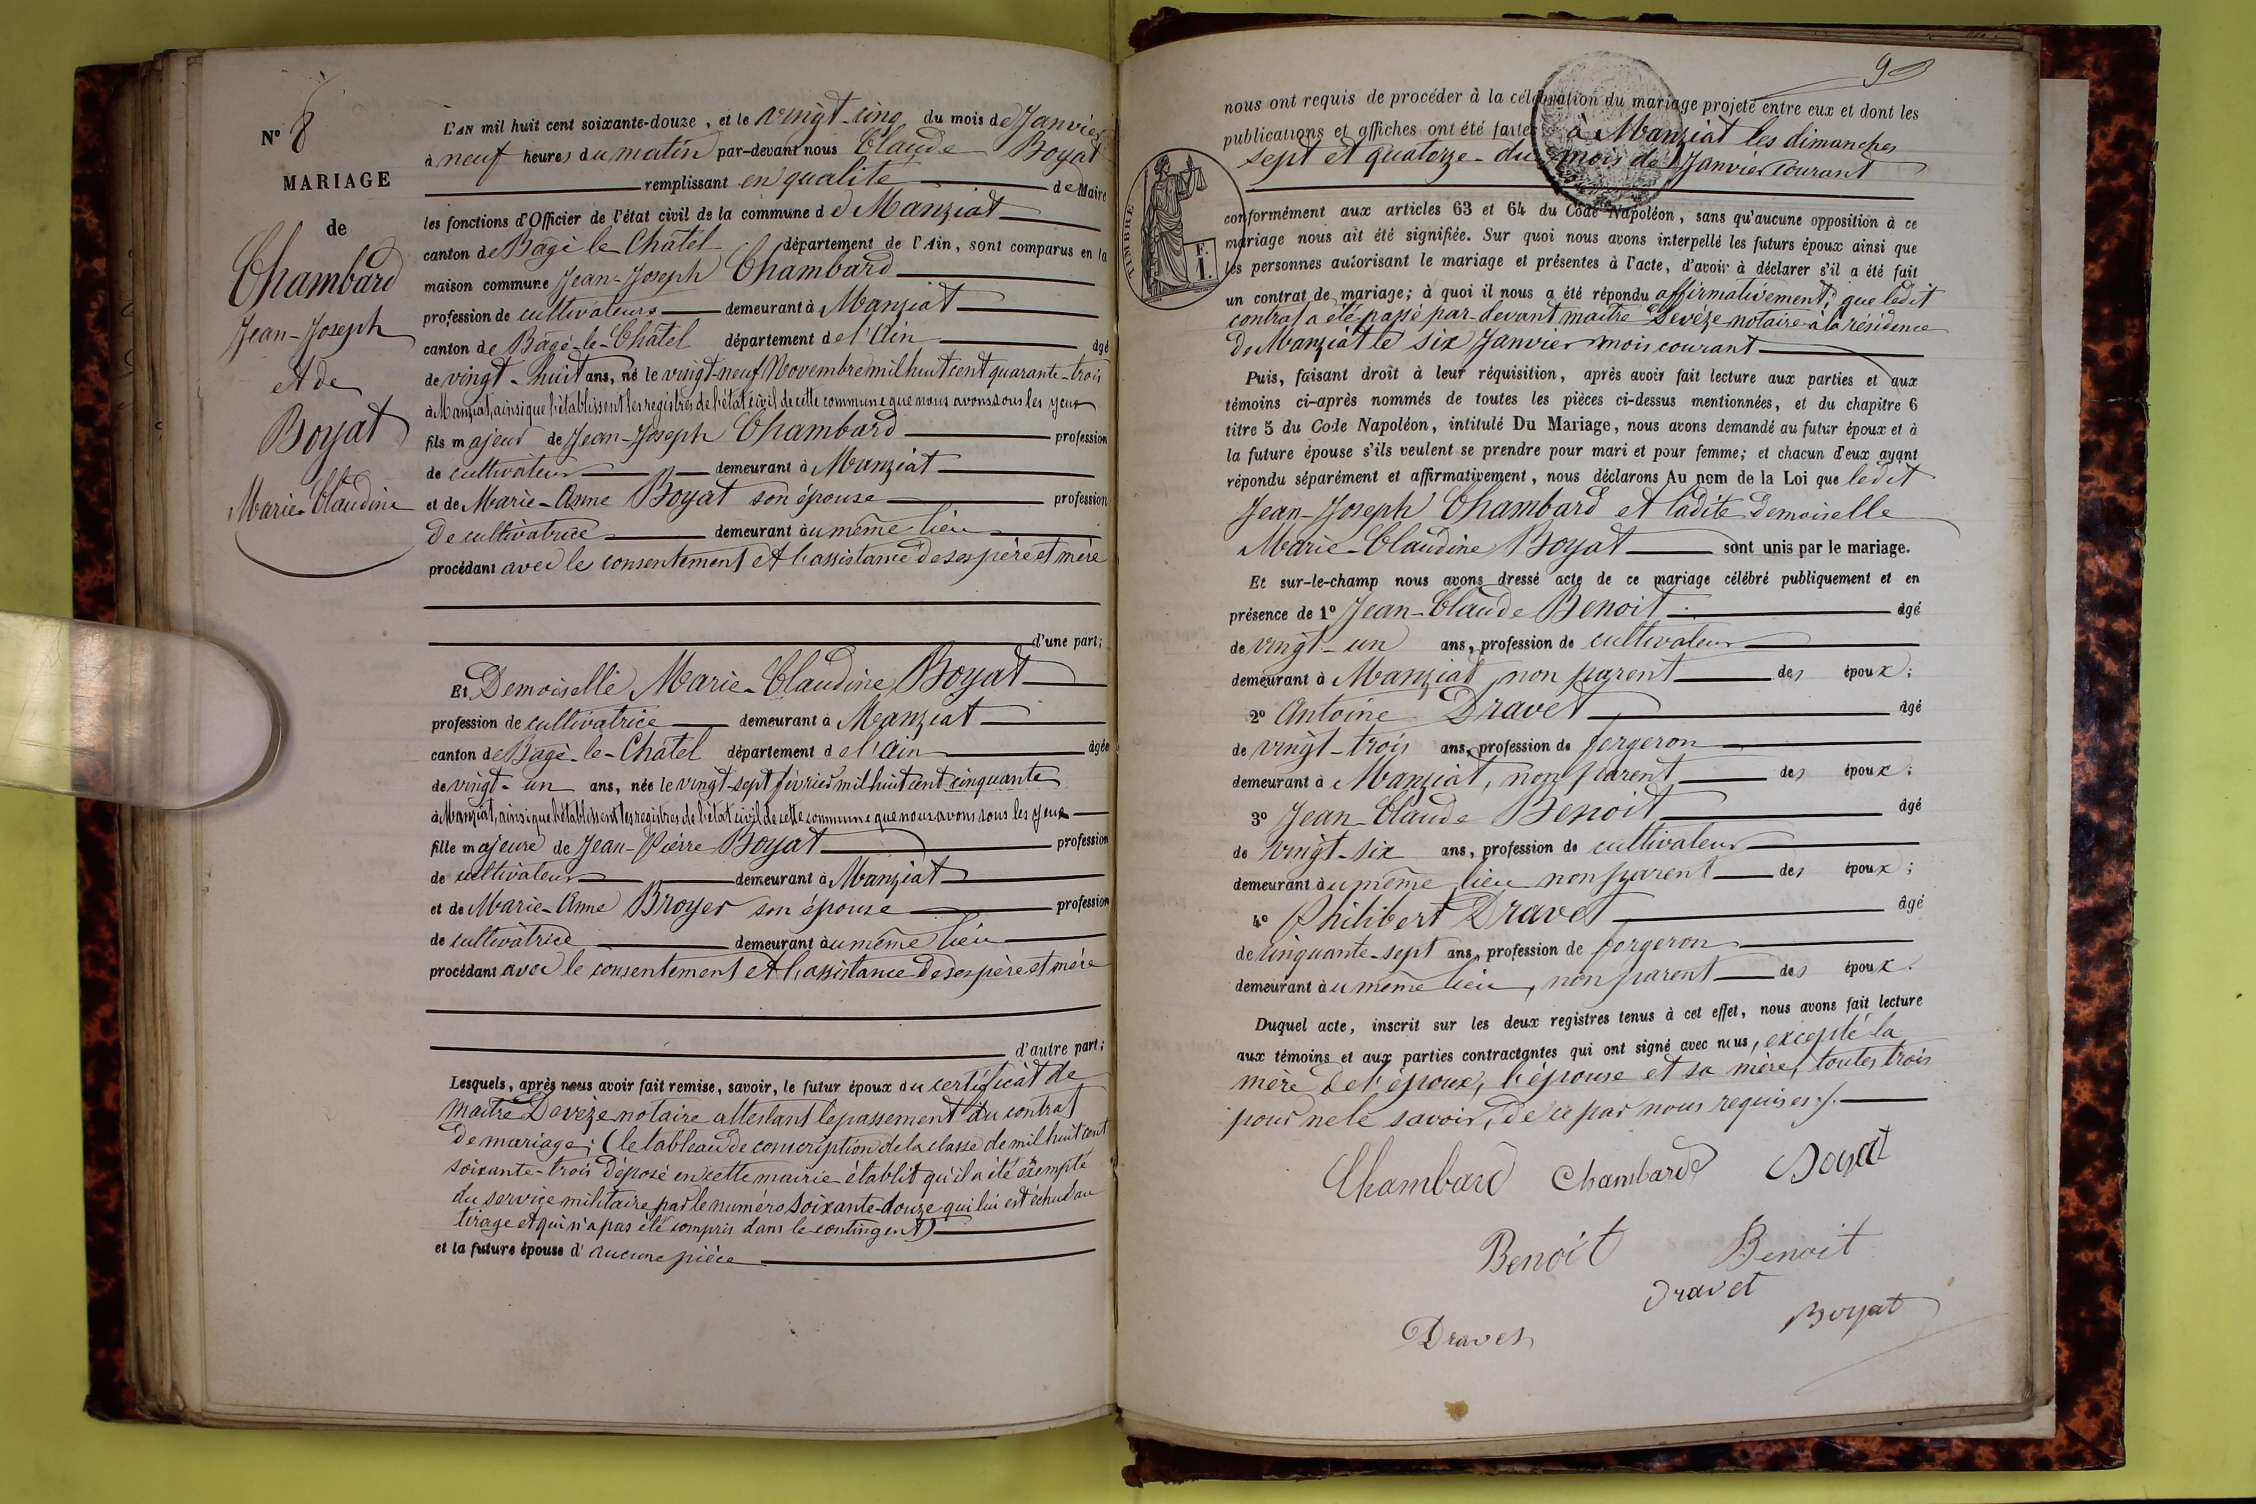 N° 8
MARIAGE
de
Chambard
Jean-Joseph
et de
Boyat
Marie-Claudine
L'AN mil huit cent soixante-douze, et le vingt-cinq du mois de Janvier
à neuf heures du matin par-devant nous Claude Boyat
remplissant en qualité de Maire
les fonctions d'Officier de l'état civil de la commune d e Manziat
canton de Bâgé le Châtel département de l'Ain, sont comparus en la
maison commune Jean-Joseph Chambard
profession de cultivateurs demeurant à Manziat
canton de Bâgé-le-Châtel département d e l'Ain âgé
de vingt-huit ans, né le vingt-neuf Novembre mil huit cent quarante-trois
à Manziat, ainsi que l'établissent les registres de l'état civil de cette commune que nous avons sous les yeux
fils majeur de Jean-Joseph Chambard profession
de cultivateur demeurant à Manziat
et de Marie-Anne Boyat son épouse profession
de cultivatrice demeurant au même lieu
procédant avec le consentement et l'assistance de ses père et mère
d'une part;
Et Demoiselle Marie-Claudine Boyat
profession de cultivatrice demeurant à Manziat
canton de Bâgé-le-Châtel département d e l'Ain âgée
de vingt-un ans, née le vingt-sept février mil huit cent cinquante
à Manziat, ainsi que l'établissent les registres de l'état civil de cette commune que nous avons sous les yeux
fille majeure de Jean-Pierre Boyat profession
de cultivateur demeurant à Manziat
et de Marie-Anne Broyer son épouse profession
de cultivatrice demeurant au même lieu
procédant avec le consentement et l'assistance de ses père et mère
d'autre part;
Lesquels, après nous avoir fait remise, savoir, le futur époux du certificat de
maître Devèze notaire attestant le passement du contrat
de mariage; (le tableau de conscription de la classe de mil huit cent
soixante-trois déposé en cette mairie établit qu'il a été exempté
du service militaire par le numéro soixante-douze qui lui est échu au
tirage et qui n'a pas été compris dans le contingent)
et la future épouse d'aucune pièce
9
nous ont requis de procéder à la célébration du mariage projeté entre eux et dont les
publications et affiches ont été faites à Manziat les dimanches
sept et quatorze du mois de Janvier courant
TIMBRE
conformément aux articles 63 et 64 du Code Napoléon, sans qu'aucune opposition à ce
mariage nous ait été signifiée. Sur quoi nous avons interpellé les futurs époux ainsi que
les personnes autorisant le mariage et présentes à l'acte, d'avoir à déclarer s'il a été fait
un contrat de mariage; à quoi il nous a été répondu affirmativement, que ledit
contrat a été passé par-devant maître Devèze notaire à la résidence
de Manziat le six Janvier mois courant
Puis, faisant droit à leur réquisition, après avoir fait lecture aux parties et aux
témoins ci-après nommés de toutes les pièces ci-dessus mentionnées, et du chapitre 6
titre 5 du Code Napoléon, intitulé Du Mariage, nous avons demandé au futur époux et à
la future épouse s'ils veulent se prendre pour mari et pour femme; et chacun d'eux ayant
répondu séparément et affirmativement, nous déclarons Au nom de la Loi que ledit
Jean-Joseph Chambard et ladite Demoiselle
Marie-Claudine Boyat sont unis par le mariage.
Et sur-le-champ nous avons dressé acte de ce mariage célébré publiquement et en
présence de 1° Jean-Claude Benoit âgé
de vingt-un ans, profession de cultivateur
demeurant à Manziat, non parent des époux;
2° Antoine Dravet âgé
de vingt-trois ans, profession de forgeron
demeurant à Manziat, non parent des époux;
3° Jean-Claude Benoit âgé
de vingt-six ans, profession de cultivateur
demeurant au même lieu non parent des époux;
4° Philibert Dravet âgé
de cinquante-sept ans, profession de forgeron
demeurant au même lieu, non parent des époux.
Duquel acte, inscrit sur les deux registres tenus à cet effet, nous avons fait lecture
aux témoins et aux parties contractantes qui ont signé avec nous, excepté la
mère de l'époux, l'épouse et sa mère, toutes trois
pour ne le savoir, de ce par nous requises ./.
Chambard Chambard Boyat
Benoit Benoit
Dravet
Boyat
Dravet